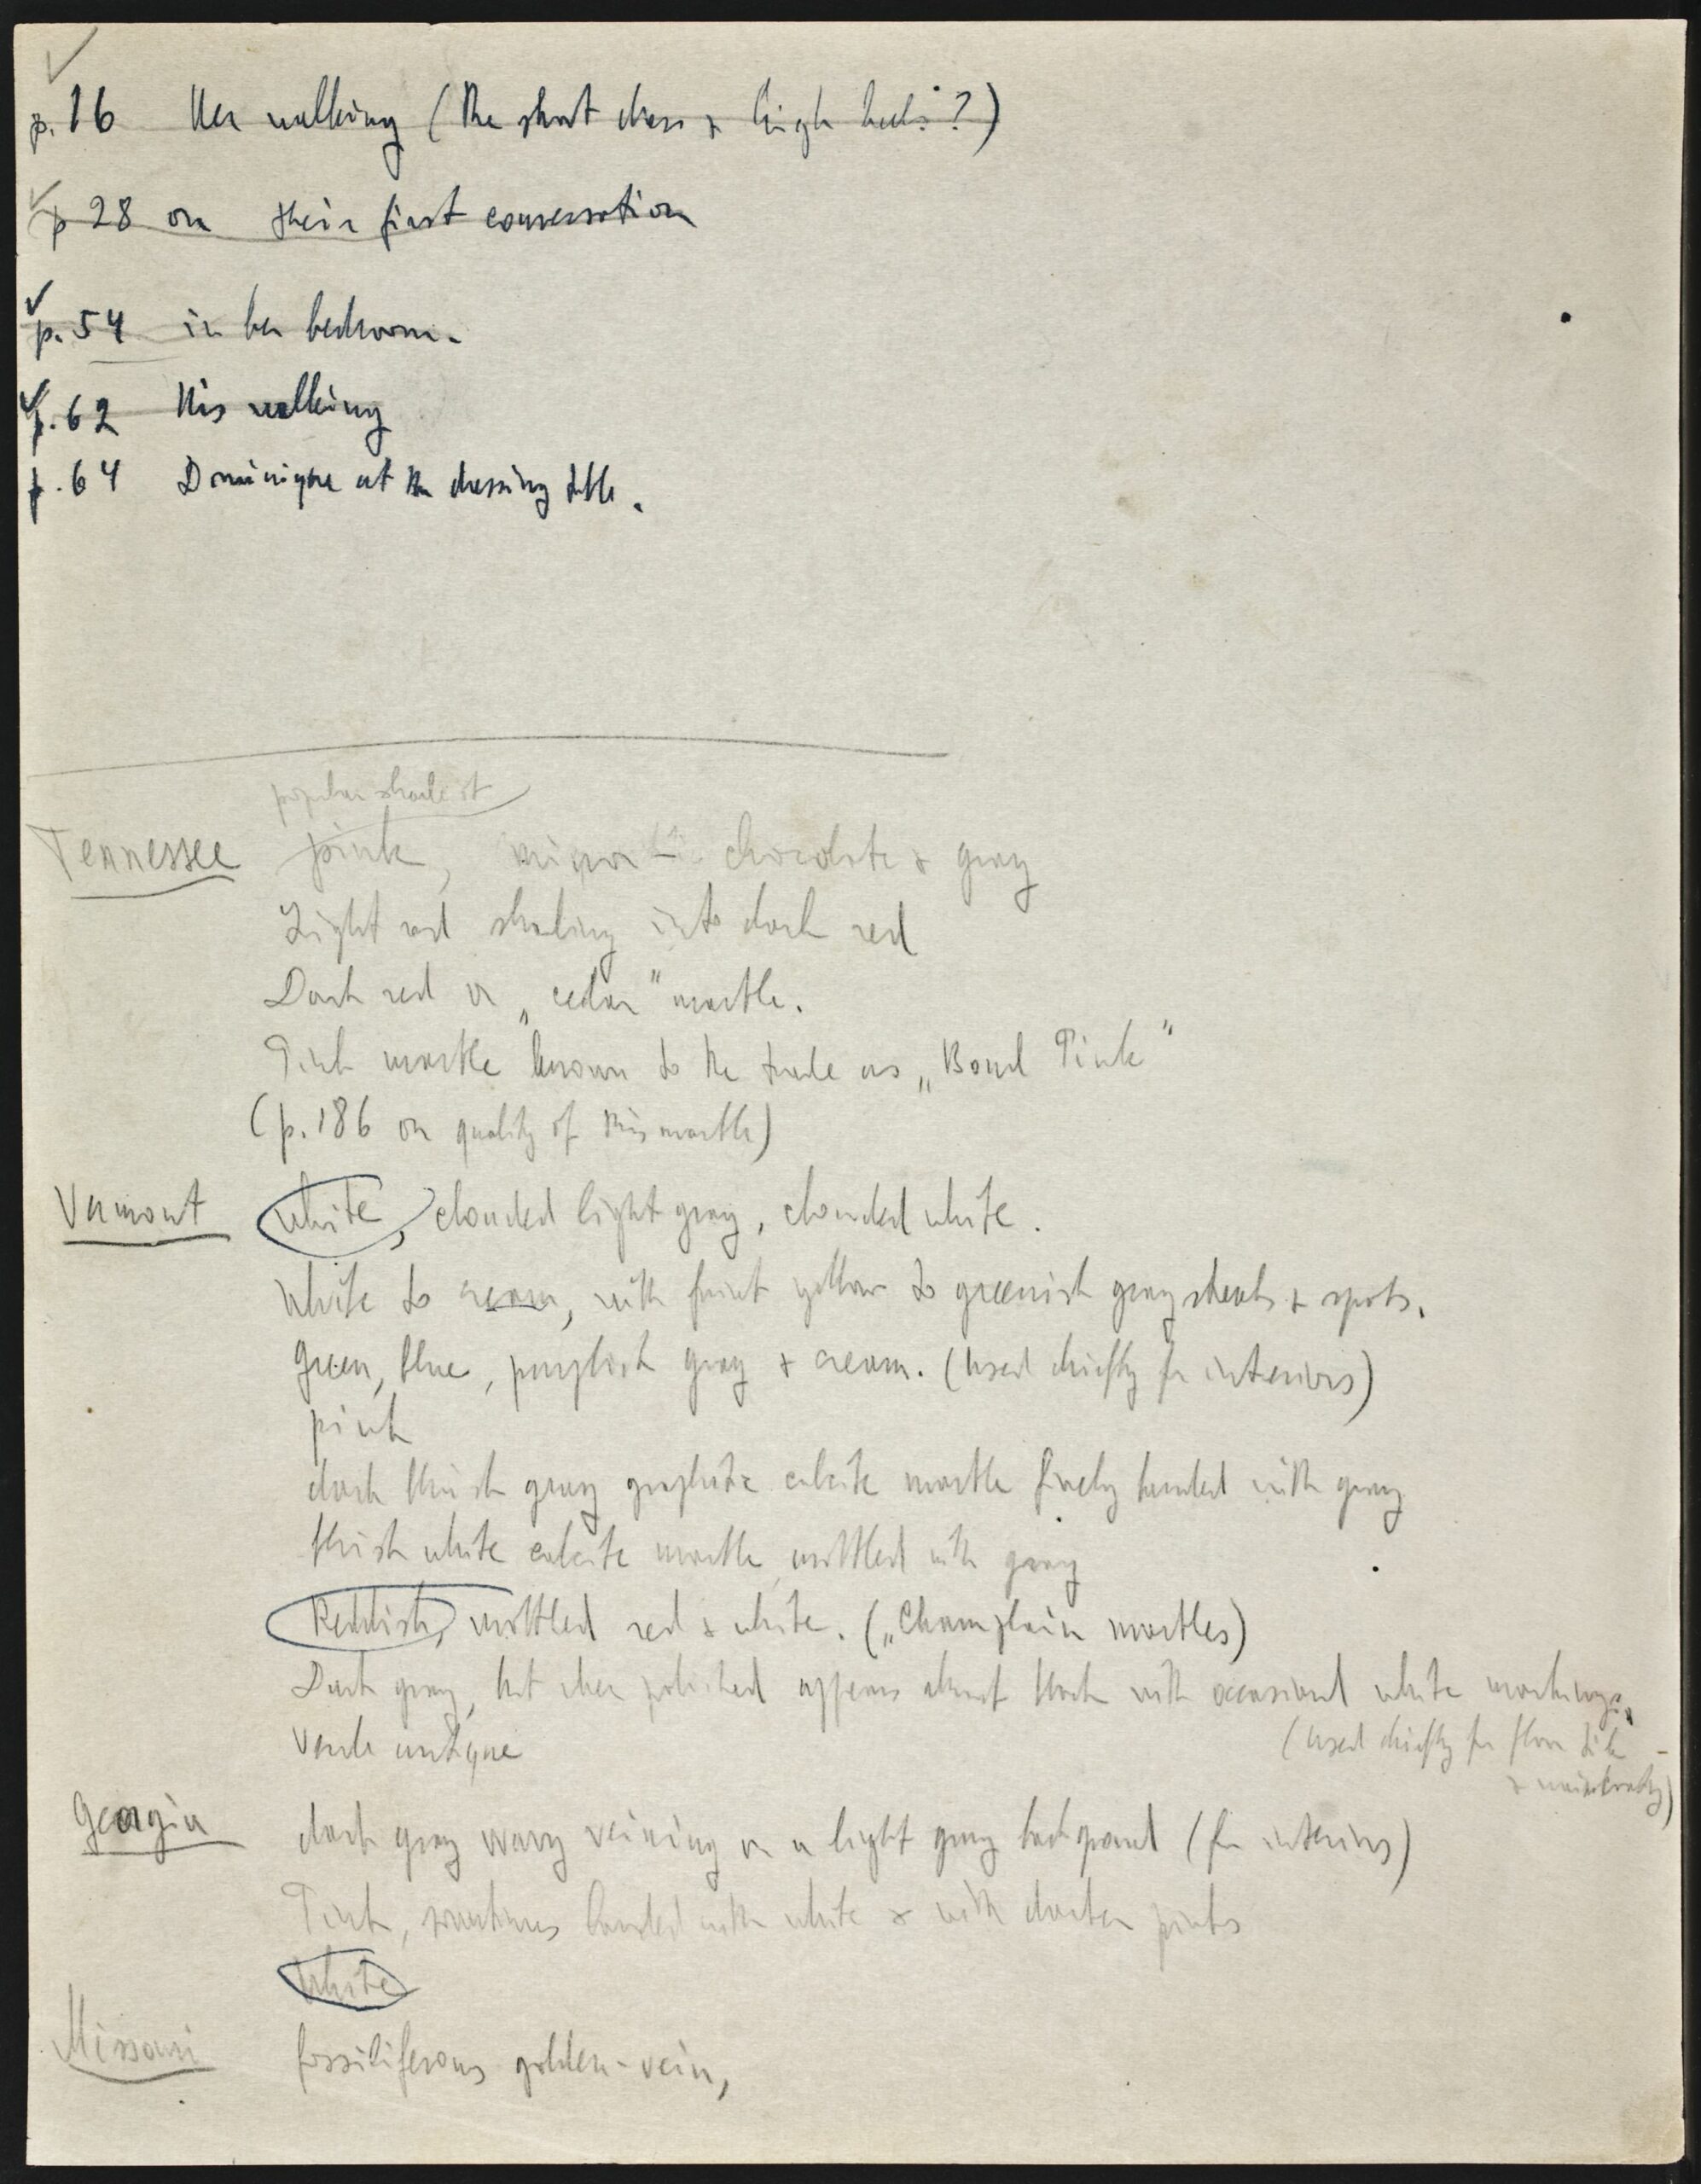 p. 16 Her walking (the short dress & high heels?)
p 28 on their first conversation
p. 54 in her bedroom.
p. 62 His walking
p. 64 Dominique at the dressing table.
popular shade it
Tennessee pink, chocolate & gray
Light red shading into dark red
Dark red or „cedar" marble.
Pink marble known to the trade as „Bond Pink"
(p. 186 on quality of this marble)
Vermont white, clouded light gray, clouded white.
White to cream, with faint yellow to greenish gray streaks & spots.
Green, blue, purplish gray & cream. (used chiefly for interiors)
pink
dark bluish gray graphite calcite marble finely banded with gray
bluish white calcite marble, mottled with gray
Reddish, mottled red & white. („Champlain marbles)
Dark gray, but when polished appears almost black with occasional white markings.
(used chiefly for floor tile
& wainscoting)
Verde antique
Georgia dark gray wavy veining on a light gray background (for interiors)
Pink, sometimes banded with white & with darker pinks
White
Missouri fossiliferous golden-vein,